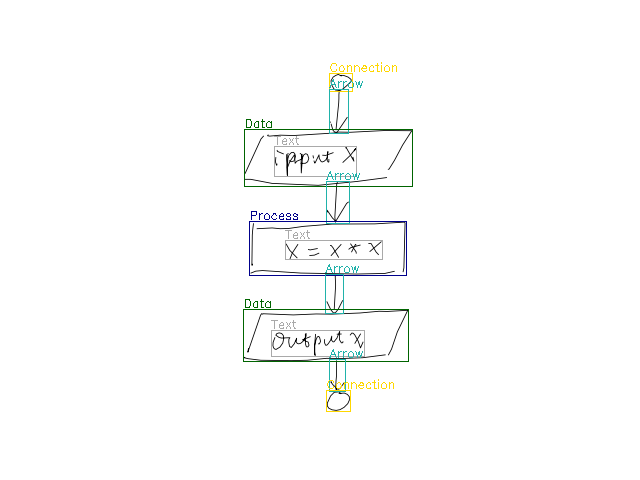 Connection
Arrow
Data
Text
ipput X
Arrow
Process
Text
X = X * X
Arrow
Data
Text
output x
Arrow
Connection